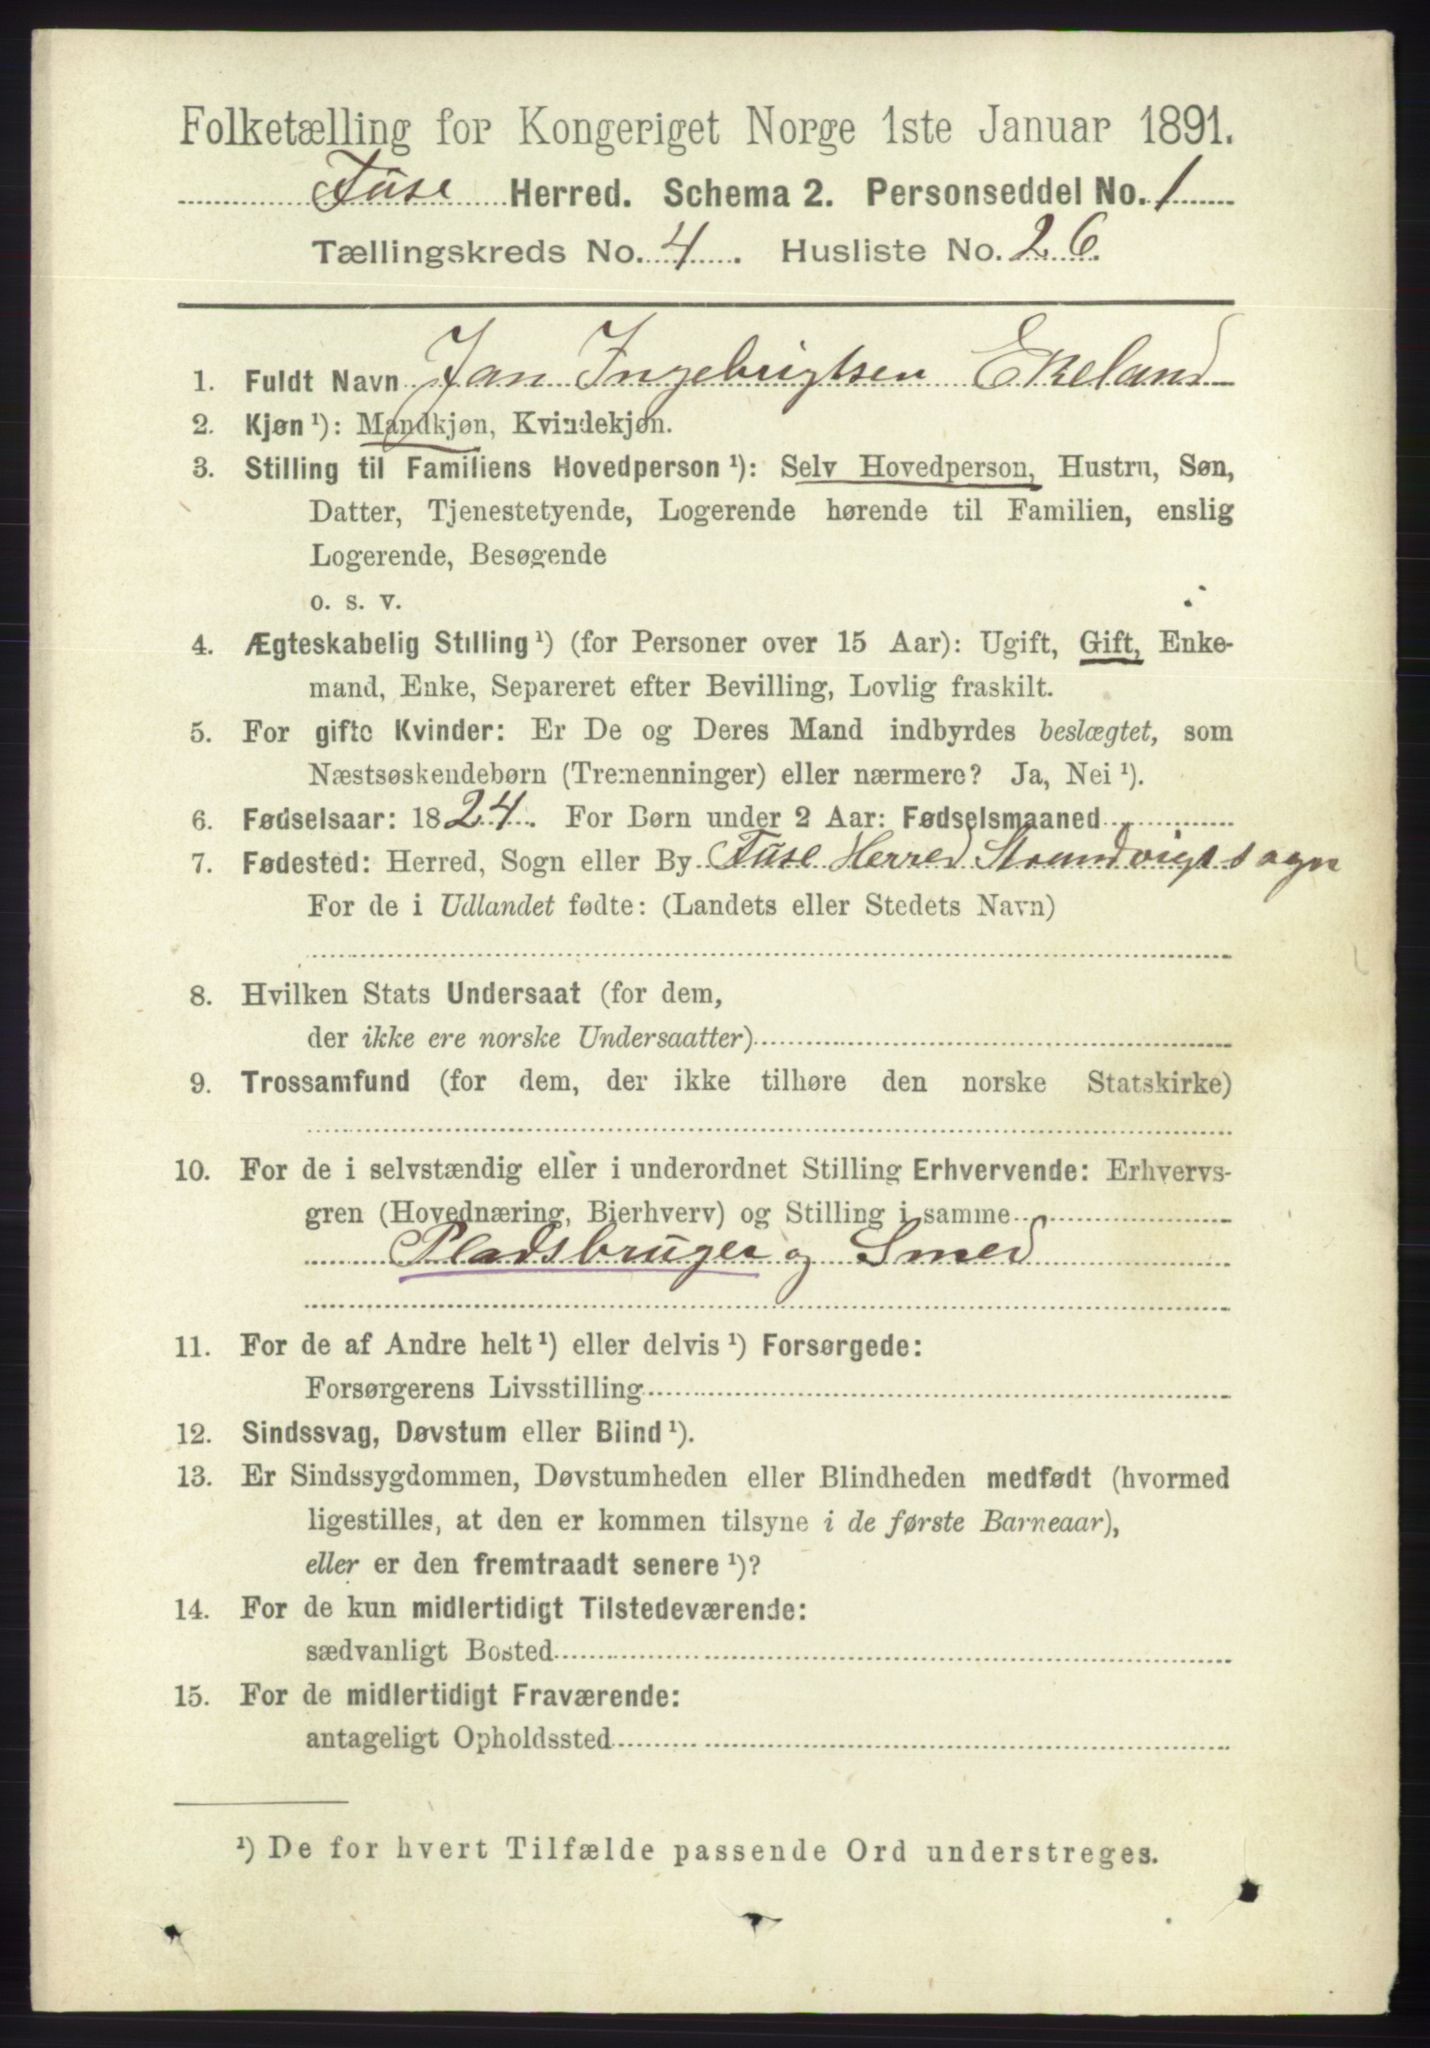 Folketælling for Kongeriget Norge 1ste Januar 1891.
Fuse Herred. Schema 2. Personseddel No. 1
Tællingskreds No. 4. Husliste No. 26.
1. Fuldt Navn Jan Ingebrigtsen Ekeland
2. Kjøn ¹): Mandkjøn, Kvindekjøn.
3. Stilling til Familiens Hovedperson ¹): Selv Hovedperson, Hustru, Søn,
Datter, Tjenestetyende, Logerende hørende til Familien, enslig
Logerende, Besøgende
o. s. v.
4. Ægteskabelig Stilling ¹) (for Personer over 15 Aar): Ugift, Gift, Enke-
mand, Enke, Separeret efter Bevilling, Lovlig fraskilt.
5. For gifte Kvinder: Er De og Deres Mand indbyrdes beslægtet, som
Næstsøskendebørn (Tremenninger) eller nærmere? Ja, Nei ¹).
6. Fødselsaar: 1824. For Børn under 2 Aar: Fødselsmaaned
7. Fødested: Herred, Sogn eller By Fuse Herred Strandvigs sogn
For de i Udlandet fødte: (Landets eller Stedets Navn)
8. Hvilken Stats Undersaat (for dem,
der ikke ere norske Undersaatter)
9. Trossamfund (for dem, der ikke tilhøre den norske Statskirke)
10. For de i selvstændig eller i underordnet Stilling Erhvervende: Erhvervs-
gren (Hovednæring, Bierhverv) og Stilling i samme
Pladsbruger og Smed
11. For de af Andre helt ¹) eller delvis ¹) Forsørgede:
Forsørgerens Livsstilling
12. Sindssvag, Døvstum eller Blind ¹).
13. Er Sindssygdommen, Døvstumheden eller Blindheden medfødt (hvormed
ligestilles, at den er kommen tilsyne i de første Barneaar),
eller er den fremtraadt senere ¹)?
14. For de kun midlertidigt Tilstedeværende:
sædvanligt Bosted
15. For de midlertidigt Fraværende:
antageligt Opholdssted
¹) De for hvert Tilfælde passende Ord understreges.